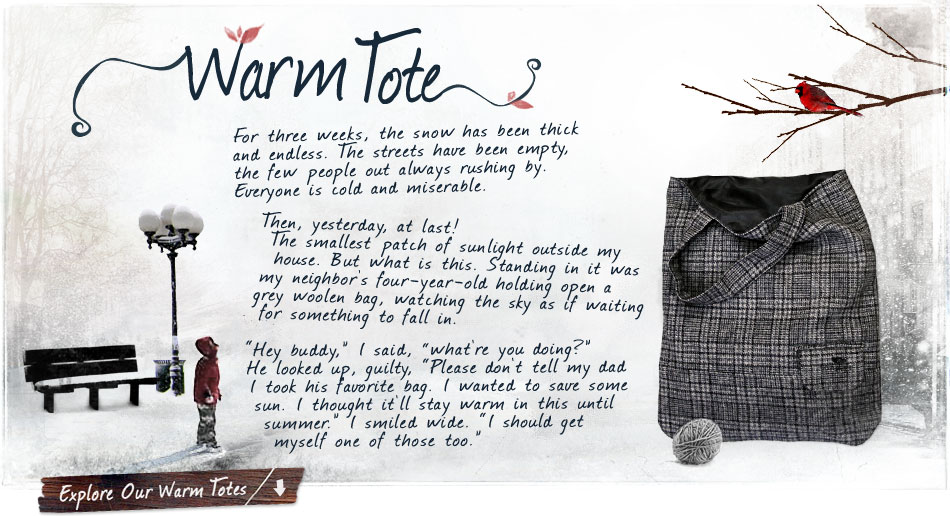 Warm Tote
For three weeks, the snow has been thick
and endless. The streets have been empty,
the few people out always rushing by.
Everyone is cold and miserable.
Then, yesterday, at last!
The smallest patch of sunlight outside my
house. But what is this. Standing in it was
my neighbor's four-year-old holding open a
grey woolen bag, watching the sky as if waiting
for something to fall in.
"Hey buddy," I said, "what're you doing?"
He looked up, guilty, "Please don't tell my dad
I took his favorite bag. I wanted to save some
sun. I thought it'll stay warm in this until
summer." I smiled wide. "I should get
myself one of those too."
Explore Our Warm Totes